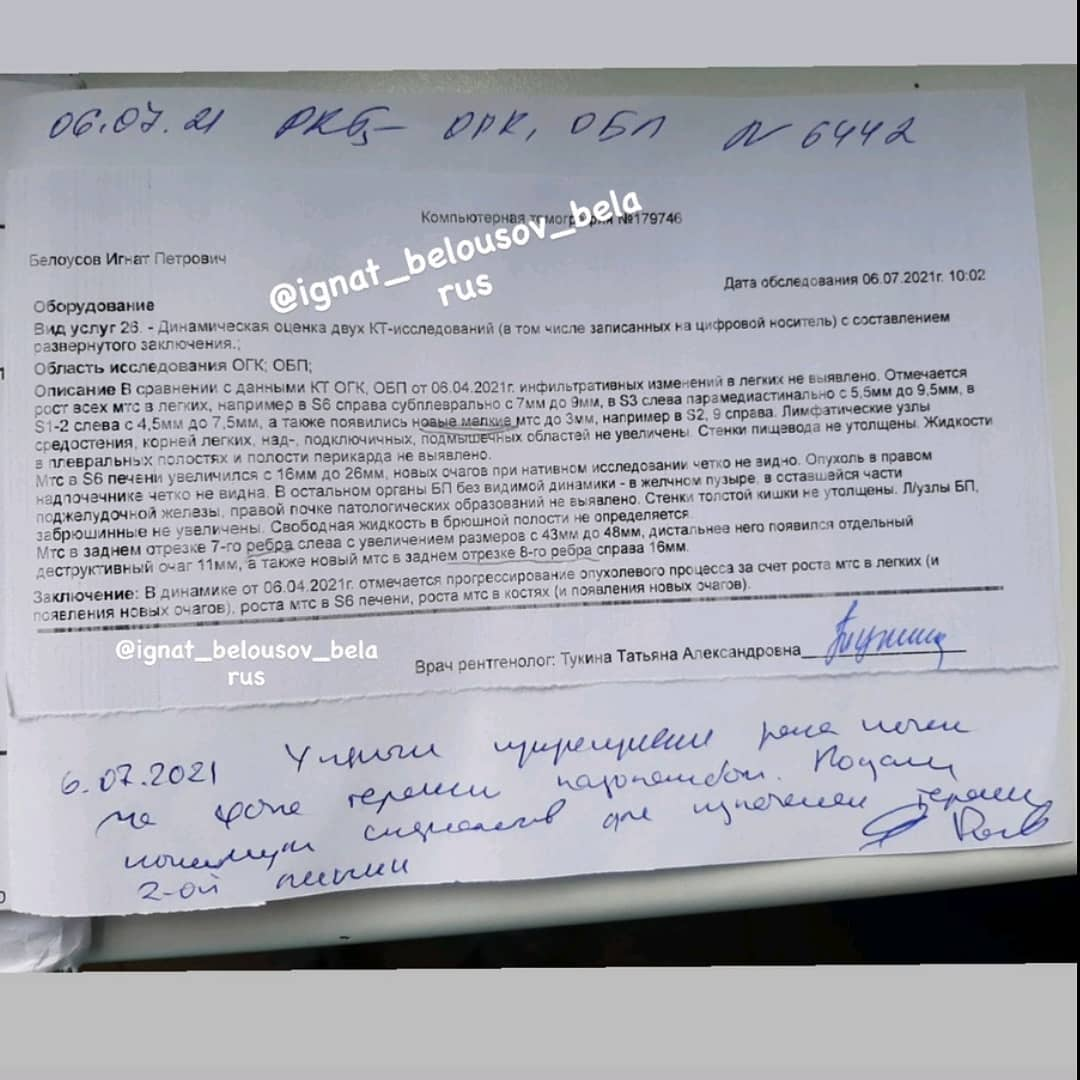 06.07.21 РКТ- ОГК, ОБП N 6442
Компьютерная томография №179746
@ignat_belousov_bela
rus
Белоусов Игнат Петрович
Дата обследования 06.07.2021г. 10:02
Оборудование
Вид услуг 26. - Динамическая оценка двух КТ-исследований (в том числе записанных на цифровой носитель) с составлением
развернутого заключения.;
Область исследования ОГК; ОБП;
Описание В сравнении с данными КТ ОГК, ОБП от 06.04.2021г. инфильтративных изменений в легких не выявлено. Отмечается
рост всех мтс в легких, например в S6 справа субплеврально с 7мм до 9мм, в S3 слева парамедиастинально с 5,5мм до 9,5мм, в
S1-2 слева с 4,5мм до 7,5мм, а также появились новые мелкие мтс до 3мм, например в S2, 9 справа. Лимфатические узлы
средостения, корней легких, над-, подключичных, подмышечных областей не увеличены. Стенки пищевода не утолщены. Жидкости
в плевральных полостях и полости перикарда не выявлено.
Мтс в S6 печени увеличился с 16мм до 26мм, новых очагов при нативном исследовании четко не видно. Опухоль в правом
надпочечнике четко не видна. В остальном органы БП без видимой динамики - в желчном пузыре, в оставшейся части
поджелудочной железы, правой почке патологических образований не выявлено. Стенки толстой кишки не утолщены. Л/узлы БП,
забрюшинные не увеличены. Свободная жидкость в брюшной полости не определяется.
Мтс в заднем отрезке 7-го ребра слева с увеличением размеров с 43мм до 48мм, дистальнее него появился отдельный
деструктивный очаг 11мм, а также новый мтс в заднем отрезке 8-го ребра справа 16мм.
Заключение: В динамике от 06.04.2021г. отмечается прогрессирование опухолевого процесса за счет роста мтс в легких (и
появления новых очагов), роста мтс в S6 печени, роста мтс в костях (и появления новых очагов).
@ignat_belousov_bela
rus
Врач рентгенолог: Тукина Татьяна Александровна
6.07.2021 рака почки
на фоне терапии пазопанибом.
консилиум для терапии
2-ой линии